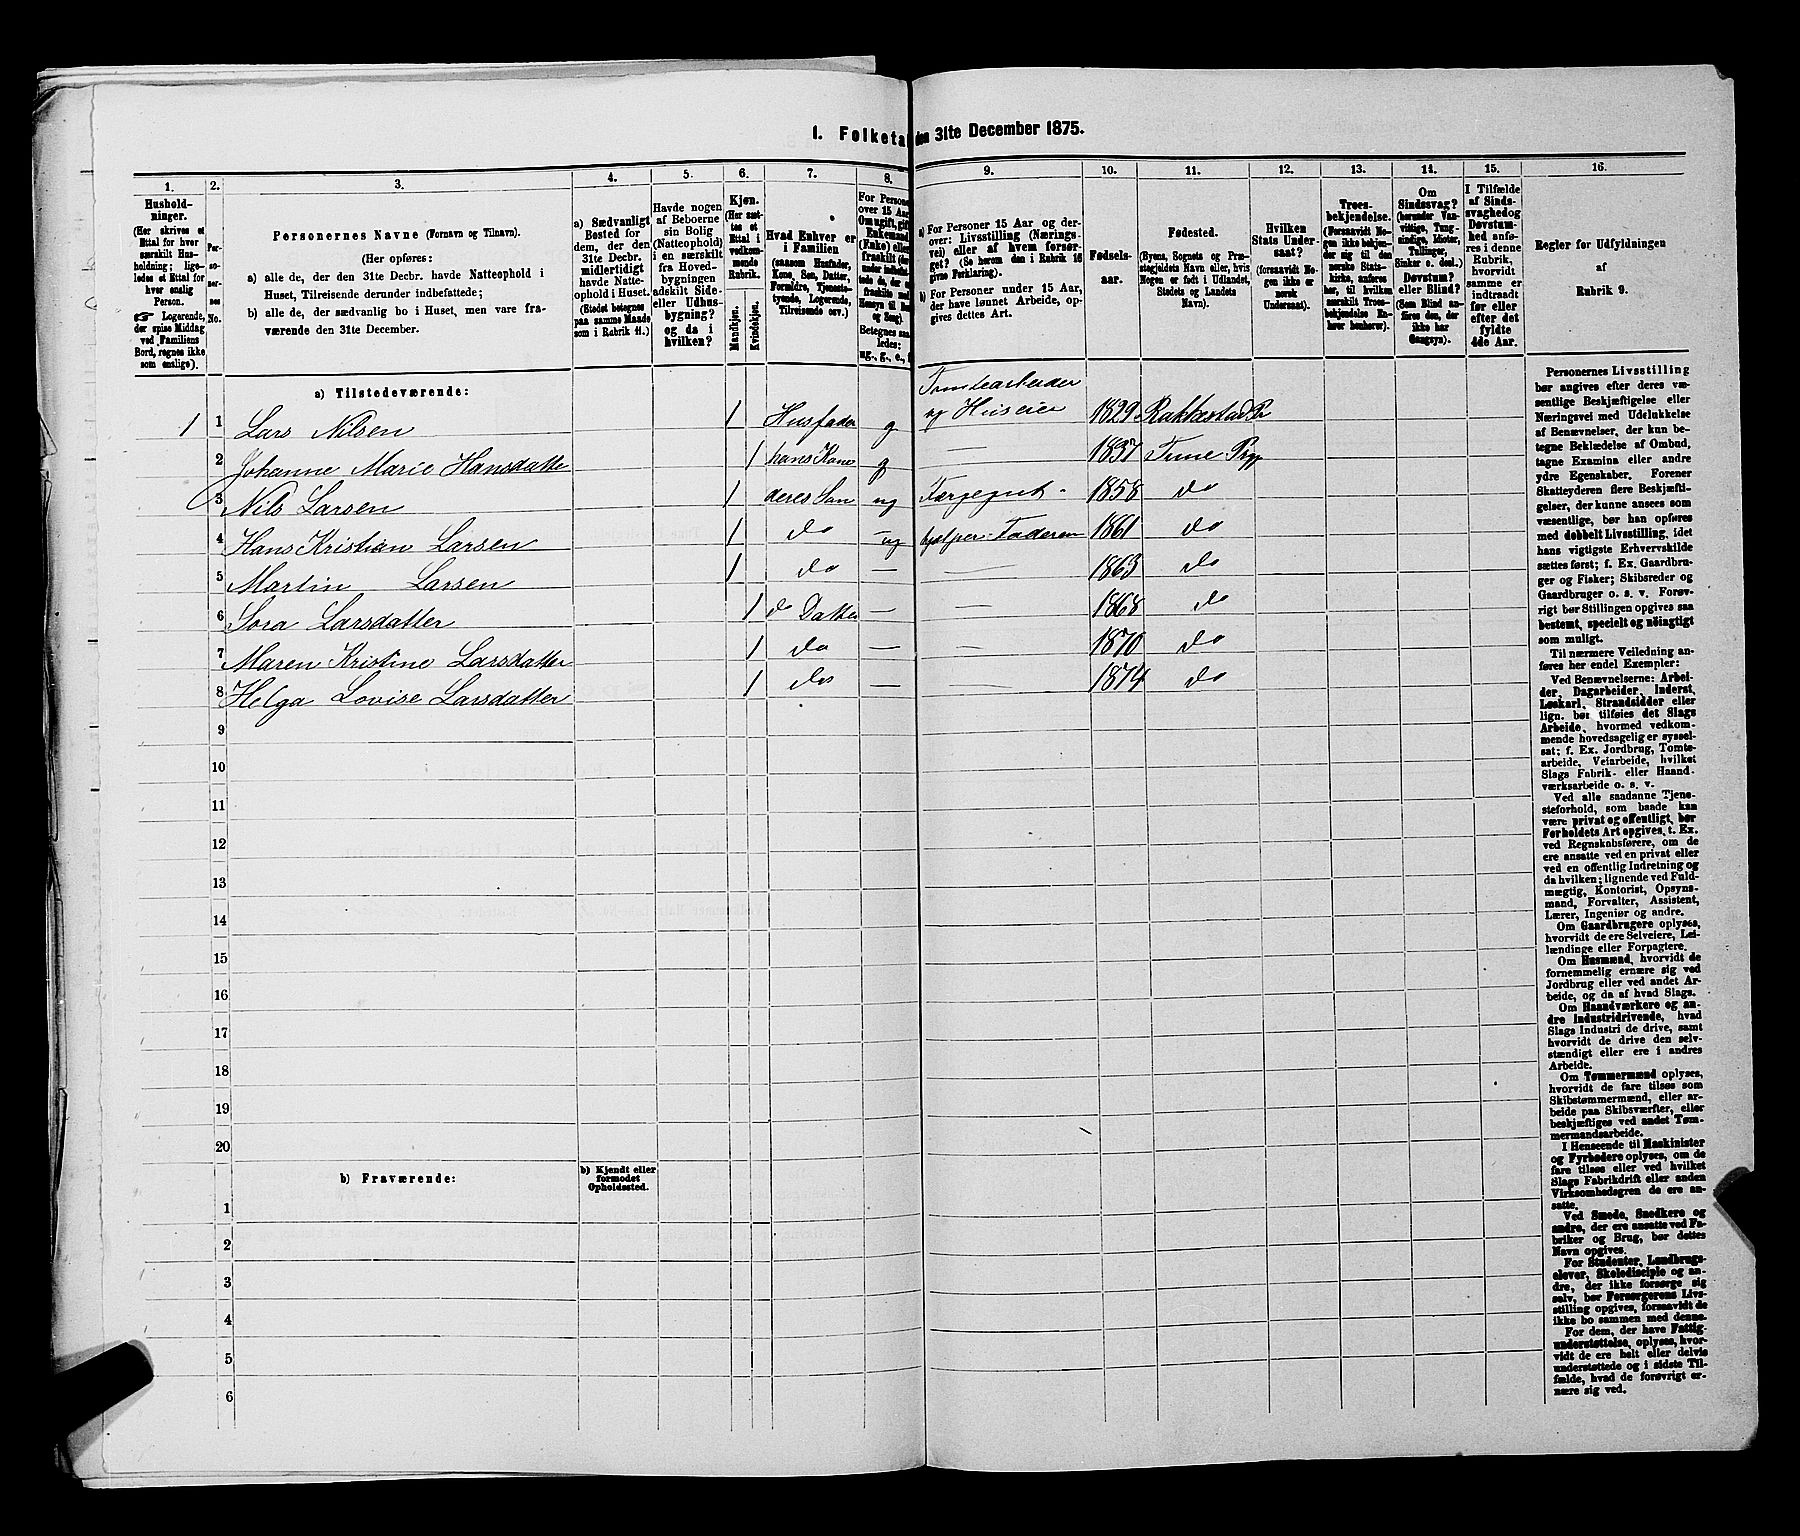 1. Folketal den 31te December 1875.
1.
2.
3.
4.
5.
6.
7.
8.
9.
10.
11.
12.
13.
14.
15.
16.
Hushold-
ninger.
(Her skrives et
Ettal for hver
særskilt Hus-
holdning; lige-
ledes et Ettal for
hver enslig
Person.
☞ Logerende,
der spise Middag
ved Familiens
Bord, regnes ikke
som enslige).
Per-
so-
ner-
nes
No.
Personernes Navne (Fornavn og Tilnavn).
(Her opføres:
a) alle de, der den 31te Decbr. havde Natteophold i
Huset, Tilreisende derunder indbefattede;
b) alle de, der sædvanlig bo i Huset, men vare fra-
værende den 31te December.
a) Sædvanligt
Bosted for
dem, der den
31te Decbr.
midlertidigt
havde Natte-
ophold i Huset.
(Stedet betegnes
paa samme Maade
som i Rubrik 11.)
Havde nogen
af Beboerne
sin Bolig
(Natteophold)
i en særskilt
fra Hoved-
bygningen
adskilt Side-
eller Udhus-
bygning?
og da i
hvilken?
Kjøn.
(Her sæt-
tes et
Ettal i
vedkom-
mende
Rubrik.
Mandkjøn.
Kvindekjøn.
Hvad Enhver er
i Familien
(saasom Husfader,
Kone, Søn, Datter,
Forældre, Tjeneste-
tyende, Logerende,
Tilreisende osv.)
For Persone
over 15 Aar
Om ugift, gift
Enkemand
(Enke) eller
fraskilt
Betegnes saa
ledes:
ug., g., e.,
a) For Personer 15 Aar og der-
over: Livsstilling (Nærings
vei) eller af hvem forsør-
get? (Se herom den i Rubrik 16
givne Forklaring).
b) For Personer under 15 Aar,
der have lønnet Arbeide, op-
gives dettes Art.
Fødsels-
aar.
Fødested.
(Byens, Sognets og Præ-
stegjeldets Navn eller, hvis
Nogen er født i Udlandet,
Stedets og Landets
Navn).
Hvilken
Stats Under-
saat?
(forsaavidt No-
gen ikke er
norsk
Undersaat).
Troes-
bekjendelse.
(Forsaavidt No-
gen ikke bekjen-
der sig til den
norske Stats-
kirke, anføres
her, til hvilken
særskilt Troes-
bekjendelse En-
hver henhører).
Om
Sindssvag?
(herunder Van-
vittige, Tung-
sindige, Idioter,
Tullinger,
Sinker o. desl.)
Døvstum?
eller Blind?
(Som Blind an-
føres den, der
ikke har
Gangsyn).
I Tilfælde
af Sinds-
svaghed og
Døvstum-
hed anfø-
res i denne
Rubrik,
hvorvidt
samme er
indtraadt
før eller
efter det
fyldte
4de Aar.
Regler for Udfyldningen
af
Rubrik 9.
a) Tilstedeværende:
1 1 Lars Nilsen 1 Husfader g Tomtearbeider
og Huseier 1829 Rakkestad Pr
2 Johanne Marie Hansdatte 1 hans Kone g — 1837 Tune Pgj
3 Nils Larsen 1 deres Søn ug 1858 do
4 Hans Kristian Larsen 1 do ug hjelper Faderen 1861 do
5 Martin Larsen 1 do — — 1863 do
6 Sora Larsdatter 1 d Datter — — 1868 do
7 Maren Kristine Larsdatter 1 do — — 1870 do
8 Helga Lovise Larsdatter 1 do — — 1874 do
9
10
11
12
13
14
15
16
17
18
19
20
b) Fraværende:
b) Kjendt eller
formodet
Opholdssted.
1
2
3
4
5
6
Personernes Livsstilling
bør angives efter deres væ-
sentlige Beskjæftigelse eller
Næringsvei med Udelukkelse
af Benævnelser, der kun be-
tegne Beklædelse af Ombud,
tagne Examina eller andre
ydre Egenskaber. Forener
Skatteyderen flere Beskjæfti-
gelser, der kunne ansees som
væsentlige, bør han opføres
med dobbelt Livsstilling, idet
hans vigtigste Erhvervskilde
sættes først; f. Ex. Gaardbru-
ger og Fisker; Skibsreder og
Gaardbruger o. s. v. Forøv-
rigt bør Stillingen opgives saa
bestemt, specielt og nøiagtigt
som muligt.
Til nærmere Veiledning an-
føres her endel Exempler:
Ved Benævnelserne: Arbei-
der, Dagarbeider, Inderst,
Løskarl, Strandsidder eller
lign. bør tilføies det Slags
Arbeide, hvormed vedkom-
mende hovedsagelig er syssel-
sat; f. Ex. Jordbrug, Tomte-
arbeide, Veiarbeide, hvilket
Slags Fabrik- eller Haand-
værksarbeide o. s. v.
Ved alle saadanne Tjene-
steforhold, som baade kan
være privat og offentligt, bør
Forholdets Art opgives, t. Ex.
ved Regnskabsførere, om de
ere ansatte ved en privat eller
ved en offentlig Indretning og
da hvilken; lignende ved Fuld-
mægtig, Kontorist, Opsyns-
mand, Forvalter, Assistent,
Lærer, Ingeniør og andre.
Om Gaardbrugere oplyses,
hvorvidt de ere Selveiere, Lei-
lændinge eller Forpagtere.
Om Husmænd, hvorvidt de
fornemmelig ernære sig ved
Jordbrug eller ved andet Ar-
beide, og da af hvad Slags.
Om Haandværkere og an-
dre Industridrivende, hvad
Slags Industri de drive, samt
hvorvidt de drive den selv-
stændigt eller ere i andres
Arbeide.
Om Tømmermænd oplyses,
hvorvidt de fare tilsøs som
Skibstømmermænd, eller ar-
beide paa Skibsværfter, eller
beskjæftiges ved andet Tøm-
mermandsarbeide.
I Henseende til Maskinister
og Fyrbødere oplyses, om de
fare tilsøs eller ved hvilket
Slags Fabrikdrift eller anden
Virksomhedsgren de ere an-
satte.
Ved Smede, Snedkere og
andre, der ere ansatte ved Fa-
briker og Brug, bør dettes
Navn opgives.
For Studenter, Landbrugs-
elever, Skoledisciple og an-
dre, der ikke forsørge sig
selv, bør Forsørgerens Livs-
stilling opgives, forsaavidt de
ikke bo sammen med denne.
For dem, der have Fattig-
understøttelse, oplyses, hvor-
vidt de ere helt eller delvis
understøttede og i sidste Til-
fælde, hvad de forøvrigt er-
nære sig ved.